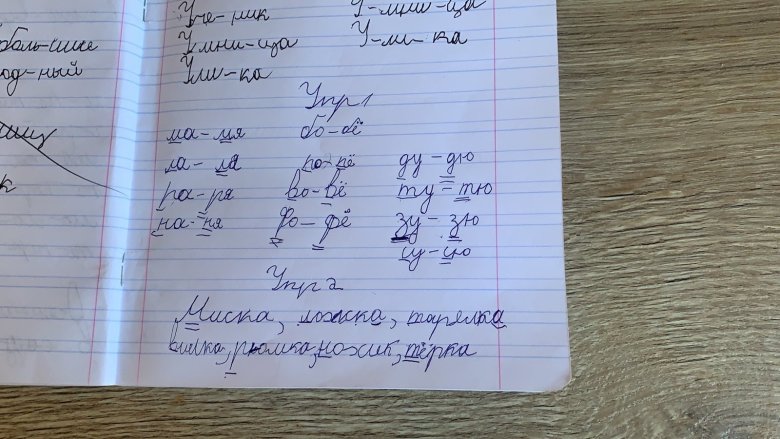 боль-шие
од-ный
Уче-ник У-мни-ца
Умни-ца У-ми-ка
Уми-ка
Упр 1
ма-мя бо-бё
ла-ля по-пё ду-дю
ра-ря во-вё ту-тю
на-ня фо-фё зу-зю
су-сю
Упр 2
Миска, ложка, тарелка
вилка, рюмка, ножик, тёрка